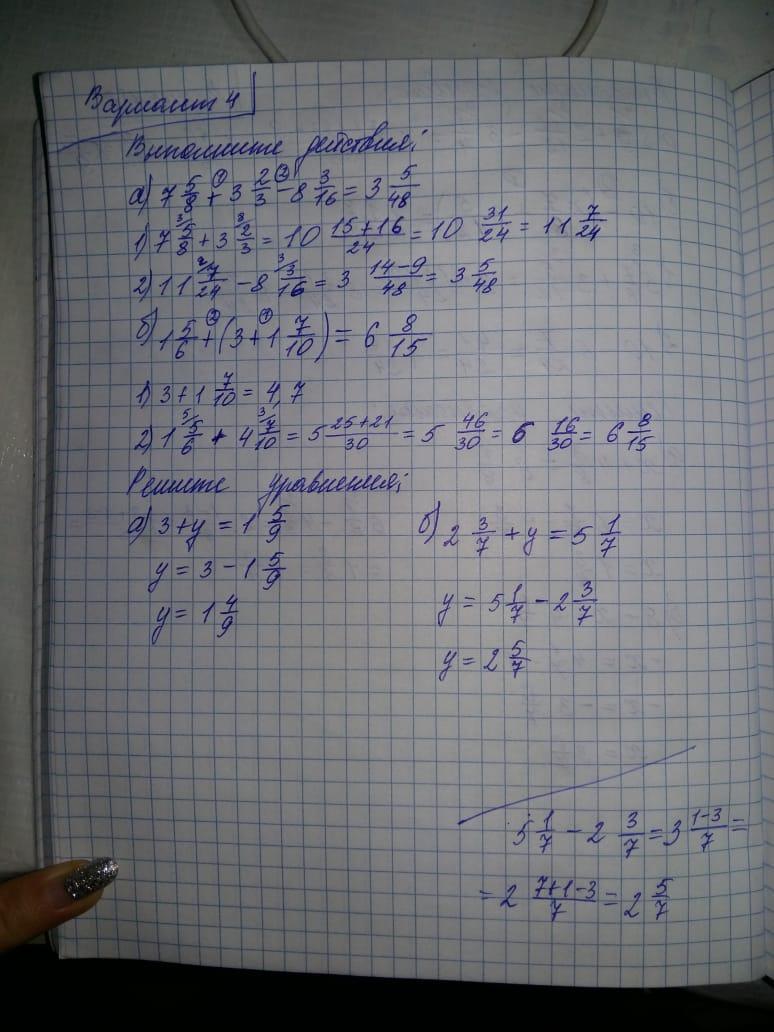 Вариант 4
Выполните действия:
а) 7 5/8 + 3 2/3 - 8 3/16 = 3 5/48
1) 7 5/8 + 3 2/3 = 10 (15+16)/24 = 10 31/24 = 11 7/24
2) 11 7/24 - 8 3/16 = 3 (14-9)/48 = 3 5/48
б) 1 5/6 + (3 + 1 7/10) = 6 8/15
1) 3 + 1 7/10 = 4,7
2) 1 5/6 + 4 7/10 = 5 (25+21)/30 = 5 46/30 = 6 16/30 = 6 8/15
Решите уравнения:
а) 3 + y = 1 5/9
y = 3 - 1 5/9
y = 1 4/9
б) 2 3/7 + y = 5 1/7
y = 5 1/7 - 2 3/7
y = 2 5/7
5 1/7 - 2 3/7 = 3 (1-3)/7 =
= 2 (7+1-3)/7 = 2 5/7